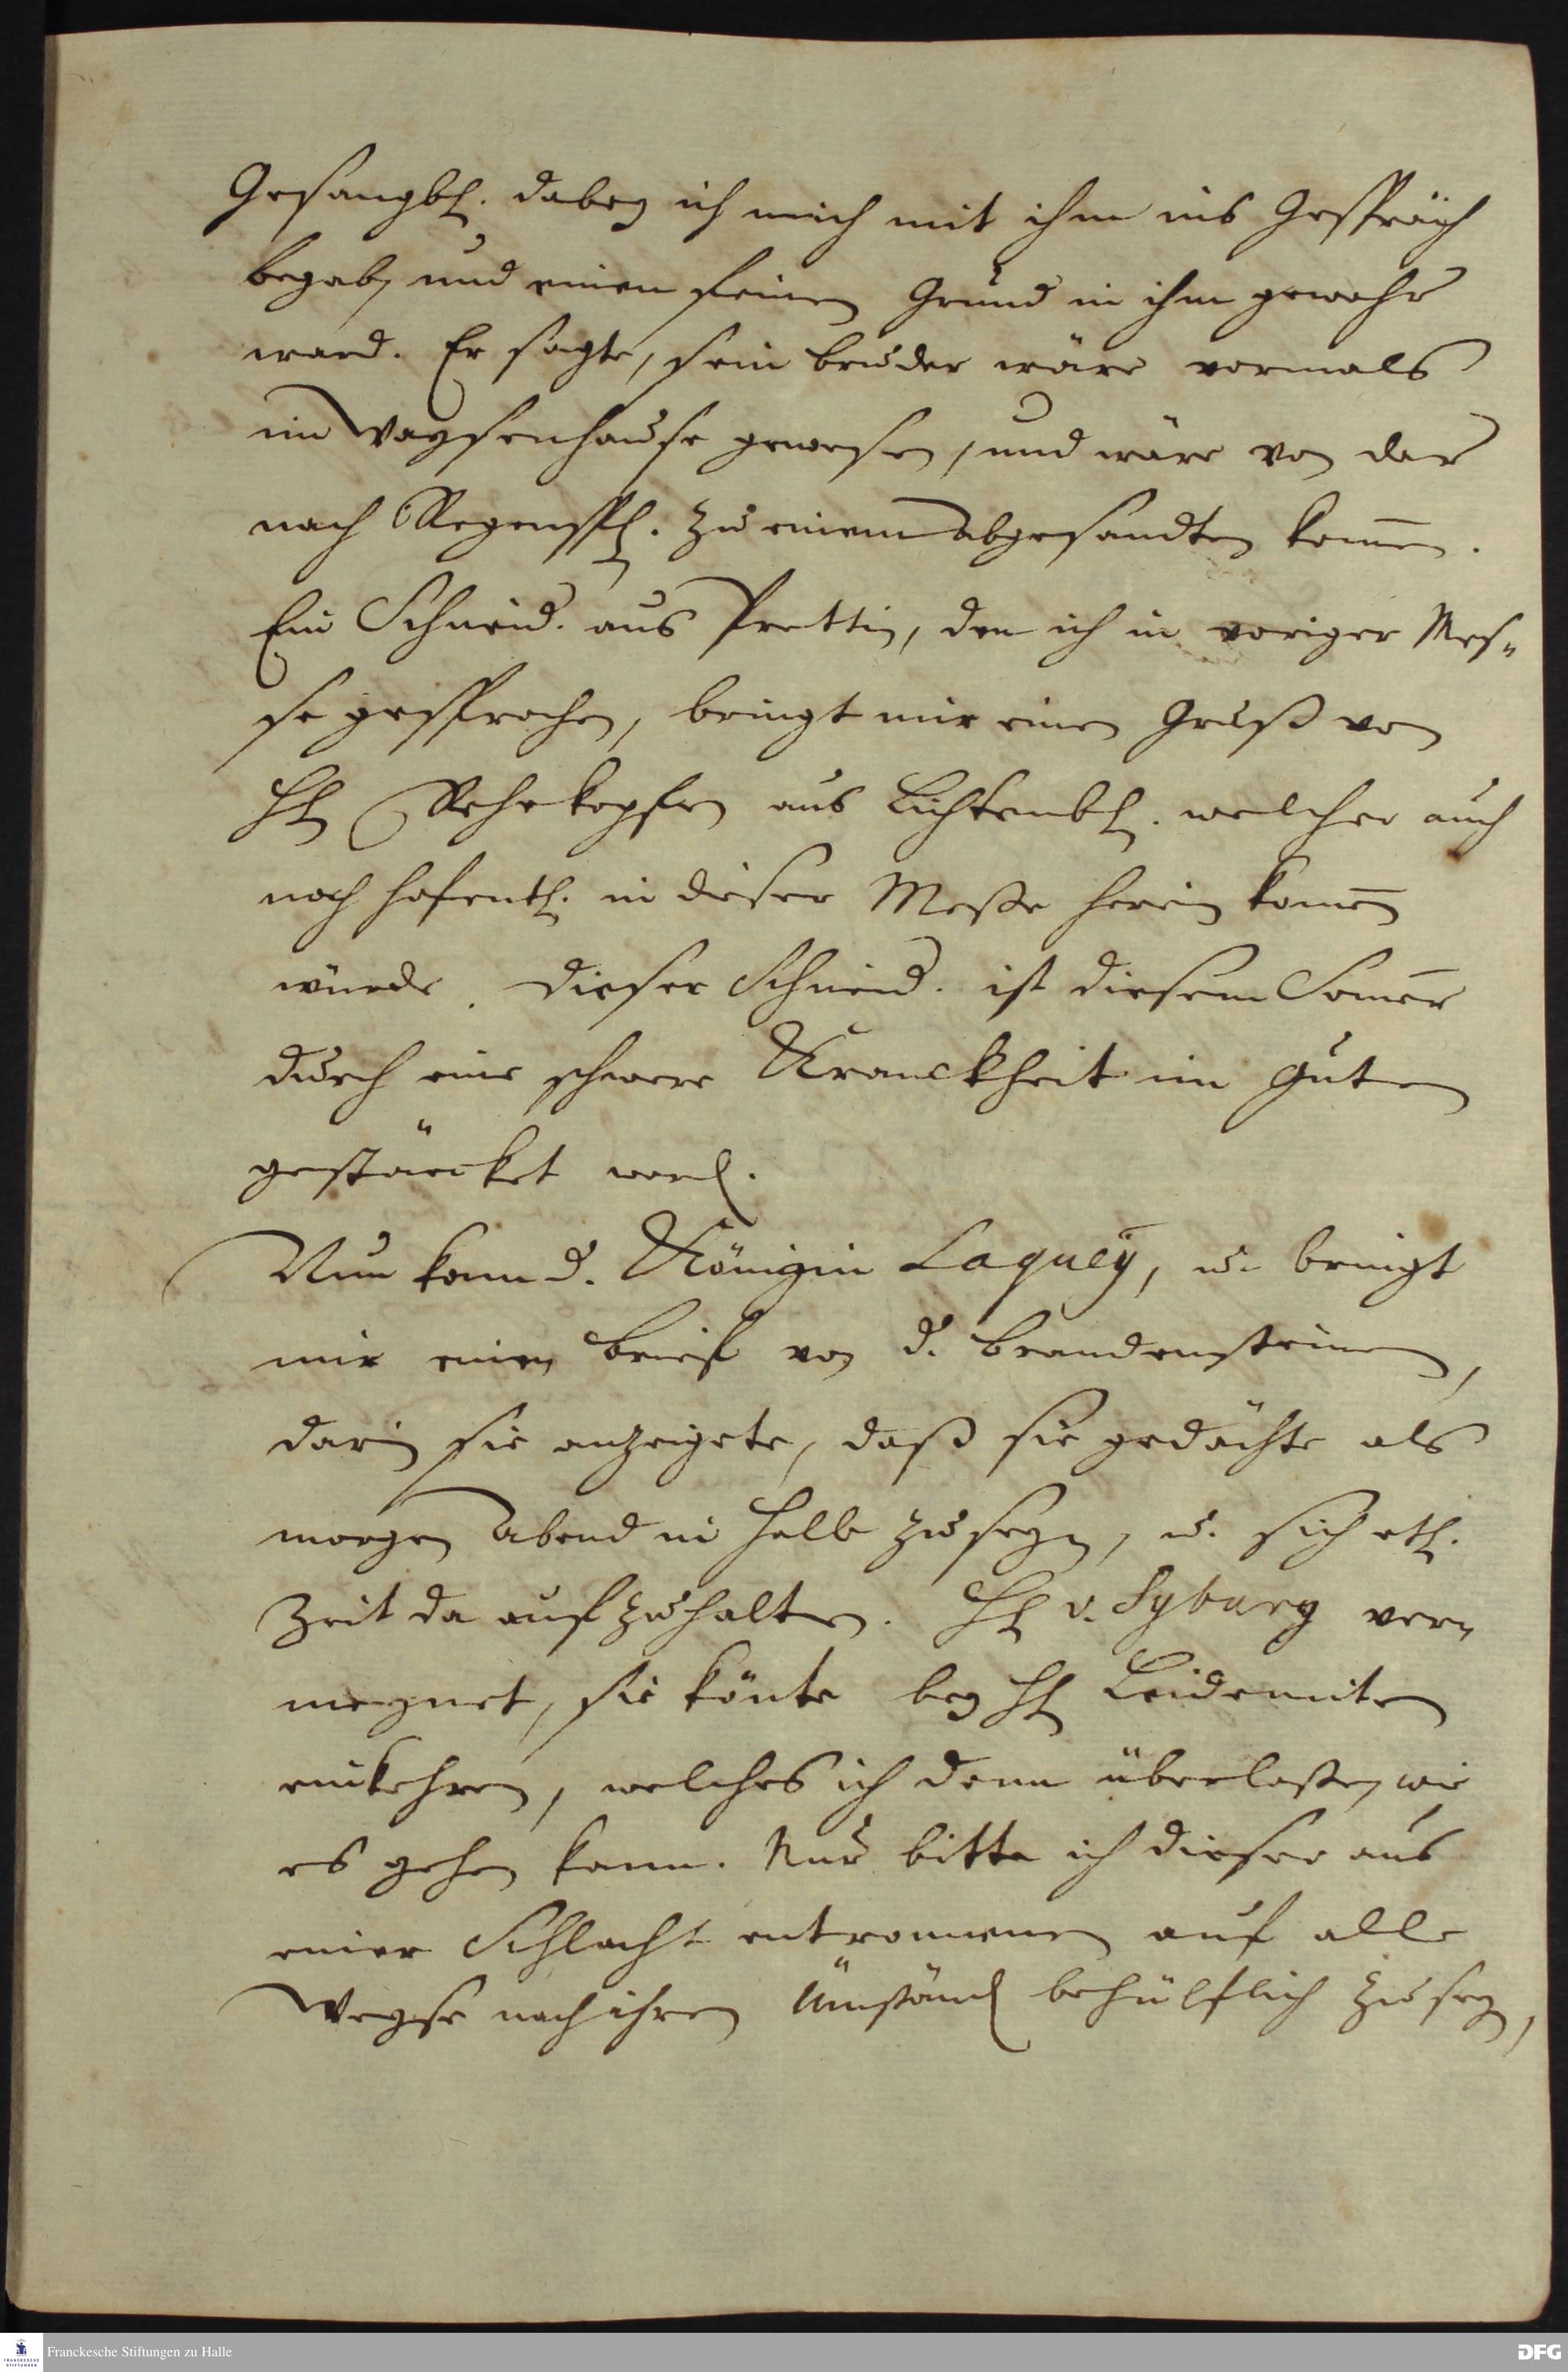 Gesangb. dabey ich mich mit ihm ins Gespräch
begab, und einen feinen Grund in ihm gewahr
ward. Er sagte, sein bruder wäre vormals
im Waysenhause gewesen, und wäre von dar
nach Regensp. zu einem abgesandten kom̅en.
Ein Schneid. aus Prettin, den ich in voriger Mes-
se gesprochen, bringt mir einen Gruß von
H. Rehekopfen aus Lichtenb. welcher auch
noch hofentl. in dieser Meße herein kom̅en
würde. Dieser Schneid. ist diesem Som̅er
durch eine schwere Kranckheit im guten
gestärcket word.
Nun kam d. Königin Laquey, u. bringt
mir einen brief von d. brandensteinen,
darin sie anzeigete, daß sie gedächte als
morgen abend in Halle zu seyn, u. sich etl.
Zeit da aufzuhalten. H. v. Syburg ver-
meynet, sie könte bey H.
einkehren, welches ich denn überlaßen, wie
es gehen kann. Nur bitte ich dieser aus
einer Schlacht entronnenen auf alle
Weyse nach ihren Umständ behülflich zu seyn,
Franckesche Stiftungen zu Halle
DFG